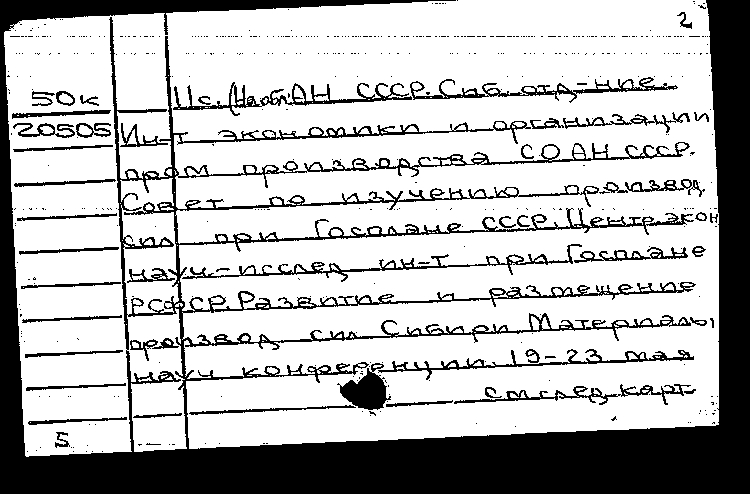 2
50к Ис. (На обл: АН СССР. Сиб. отд-ние.
20505 Ин-т экономики и организации
пром производства СОАН СССР.
Совет по изучению производ.
сил при Госплане СССР. Центр. экон
науч-исслед ин-т при Госплане
РСФСР. Развитие и размещение
производ сил Сибири. Материалы
науч конференции. 19-23 мая
см след карт
5